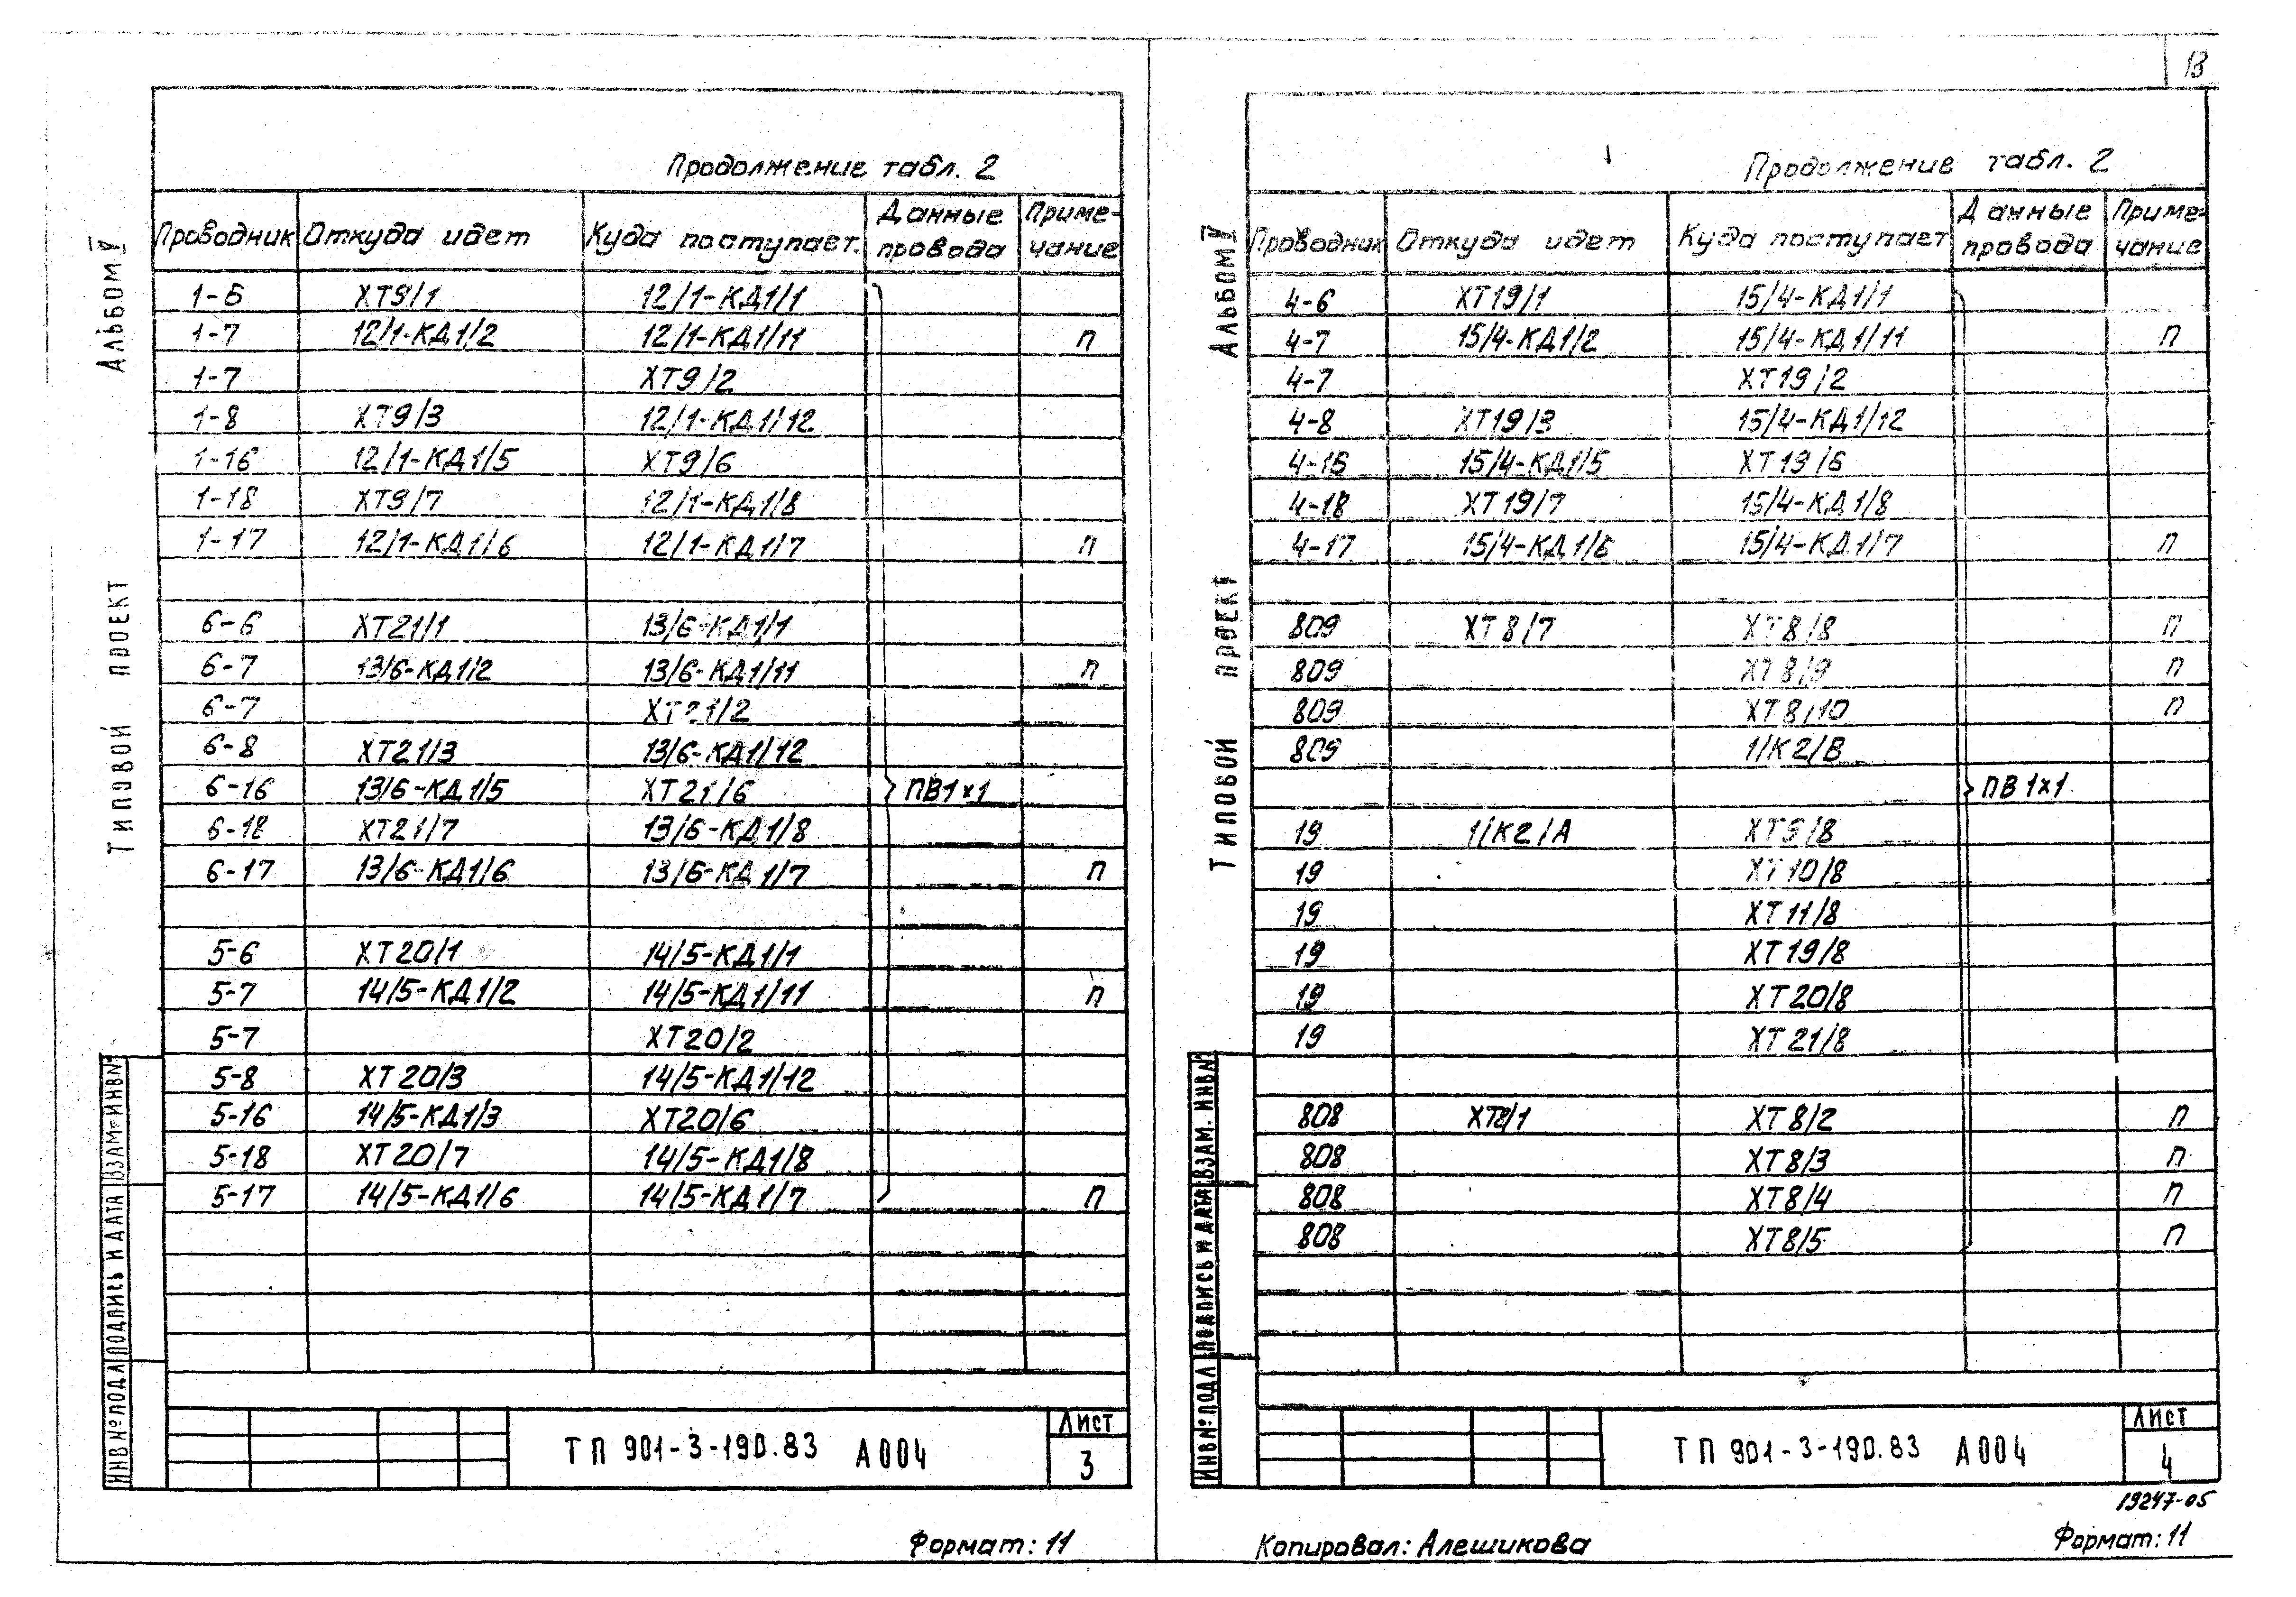 13
Продолжение табл. 2
Проводник Откуда идет Куда поступает. Данные провода Примечание
1-6 ХТ9/1 12/1-КД1/1
1-7 12/1-КД1/2 12/1-КД1/11 п
1-7 ХТ9/2
1-8 ХТ9/3 12/1-КД1/12
1-16 12/1-КД1/5 ХТ9/6
1-18 ХТ9/7 12/1-КД1/8
1-17 12/1-КД1/6 12/1-КД1/7 п
6-6 ХТ21/1 13/6-КД1/1
6-7 13/6-КД1/2 13/6-КД1/11 п
6-7 ХТ21/2
6-8 ХТ21/3 13/6-КД1/12
6-16 13/6-КД1/5 ХТ21/6 ПВ1×1
6-18 ХТ21/7 13/6-КД1/8
6-17 13/6-КД1/6 13/6-КД1/7 п
5-6 ХТ20/1 14/5-КД1/1
5-7 14/5-КД1/2 14/5-КД1/11 п
5-7 ХТ20/2
5-8 ХТ20/3 14/5-КД1/12
5-16 14/5-КД1/3 ХТ20/6
5-18 ХТ20/7 14/5-КД1/8
5-17 14/5-КД1/6 14/5-КД1/7 п
ТП 901-3-190.83 А004
Лист
3
Формат: 11
Альбом V
Типовой проект
Взам. инв №
Подпись и дата
Инв № подл
Продолжение табл. 2
Проводник Откуда идет Куда поступает Данные провода Примечание
4-6 ХТ19/1 15/4-КД1/1
4-7 15/4-КД1/2 15/4-КД1/11 п
4-7 ХТ19/2
4-8 ХТ19/3 15/4-КД1/12
4-16 15/4-КД1/5 ХТ19/6
4-18 ХТ19/7 15/4-КД1/8
4-17 15/4-КД1/6 15/4-КД1/7 п
809 ХТ8/7 ХТ8/8 п
809 ХТ8/9 п
809 ХТ8/10 п
809 1/К2/В
ПВ1×1
19 1/К2/А ХТ9/8
19 ХТ10/8
19 ХТ11/8
19 ХТ19/8
19 ХТ20/8
19 ХТ21/8
808 ХТ8/1 ХТ8/2 п
808 ХТ8/3 п
808 ХТ8/4 п
808 ХТ8/5 п
ТП 901-3-190.83 А004
Лист
4
19247-05
Копировал: Алешикова
Формат: 11
Альбом V
Типовой проект
Взам. инв №
Подпись и дата
Инв № подл